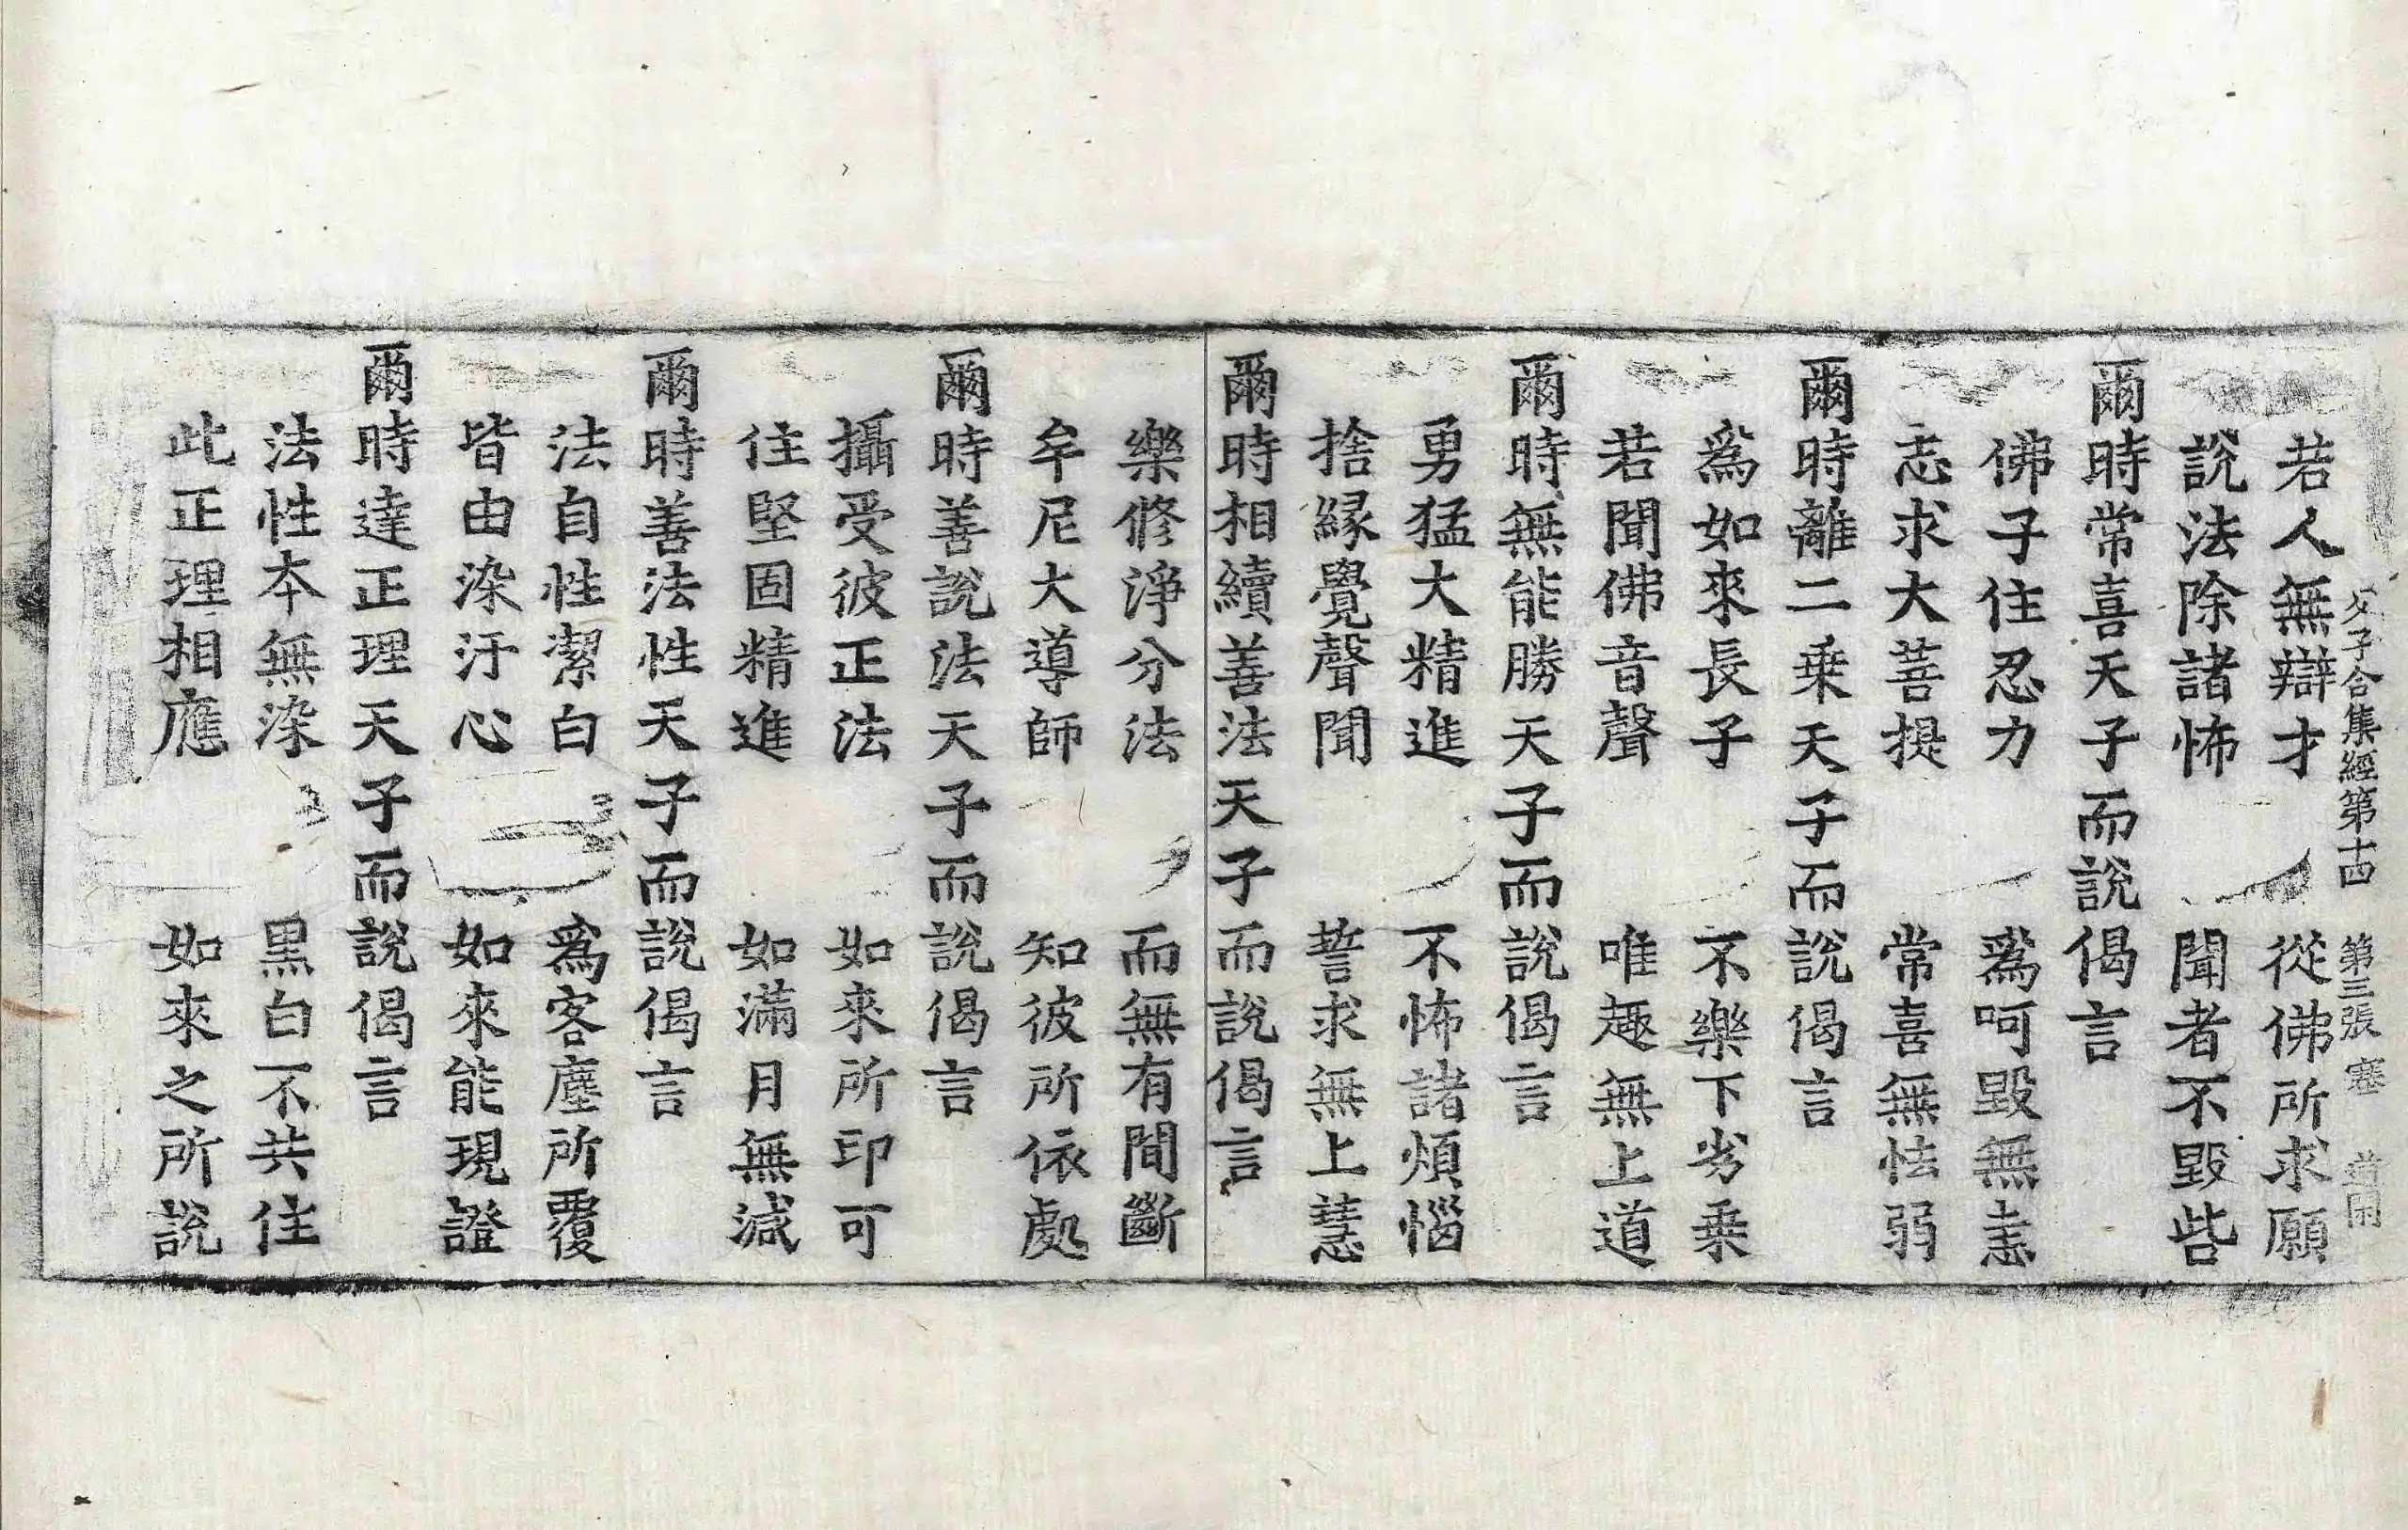 父子合集經第十四 第三張 塞
若人無辯才 從佛所求願
說法除諸怖 聞者不毀呰
爾時常喜天子而說偈言
佛子住忍力 爲呵毀無恚
志求大菩提 常喜無怯弱
爾時離二乗天子而說偈言
爲如來長子 不樂下劣乗
若聞佛音聲 唯趣無上道
爾時無能勝天子而說偈言
勇猛大精進 不怖諸煩惱
捨縁覺聲聞 誓求無上慧
爾時相續善法天子而說偈言
樂修淨分法 而無有間斷
牟尼大導師 知彼所依處
爾時善說法天子而說偈言
攝受彼正法 如來所印可
住堅固精進 如滿月無減
爾時善法性天子而說偈言
法自性潔白 爲客塵所覆
皆由染汙心 如來能現證
爾時達正理天子而說偈言
法性本無染 黒白不共住
此正理相應 如來之所說